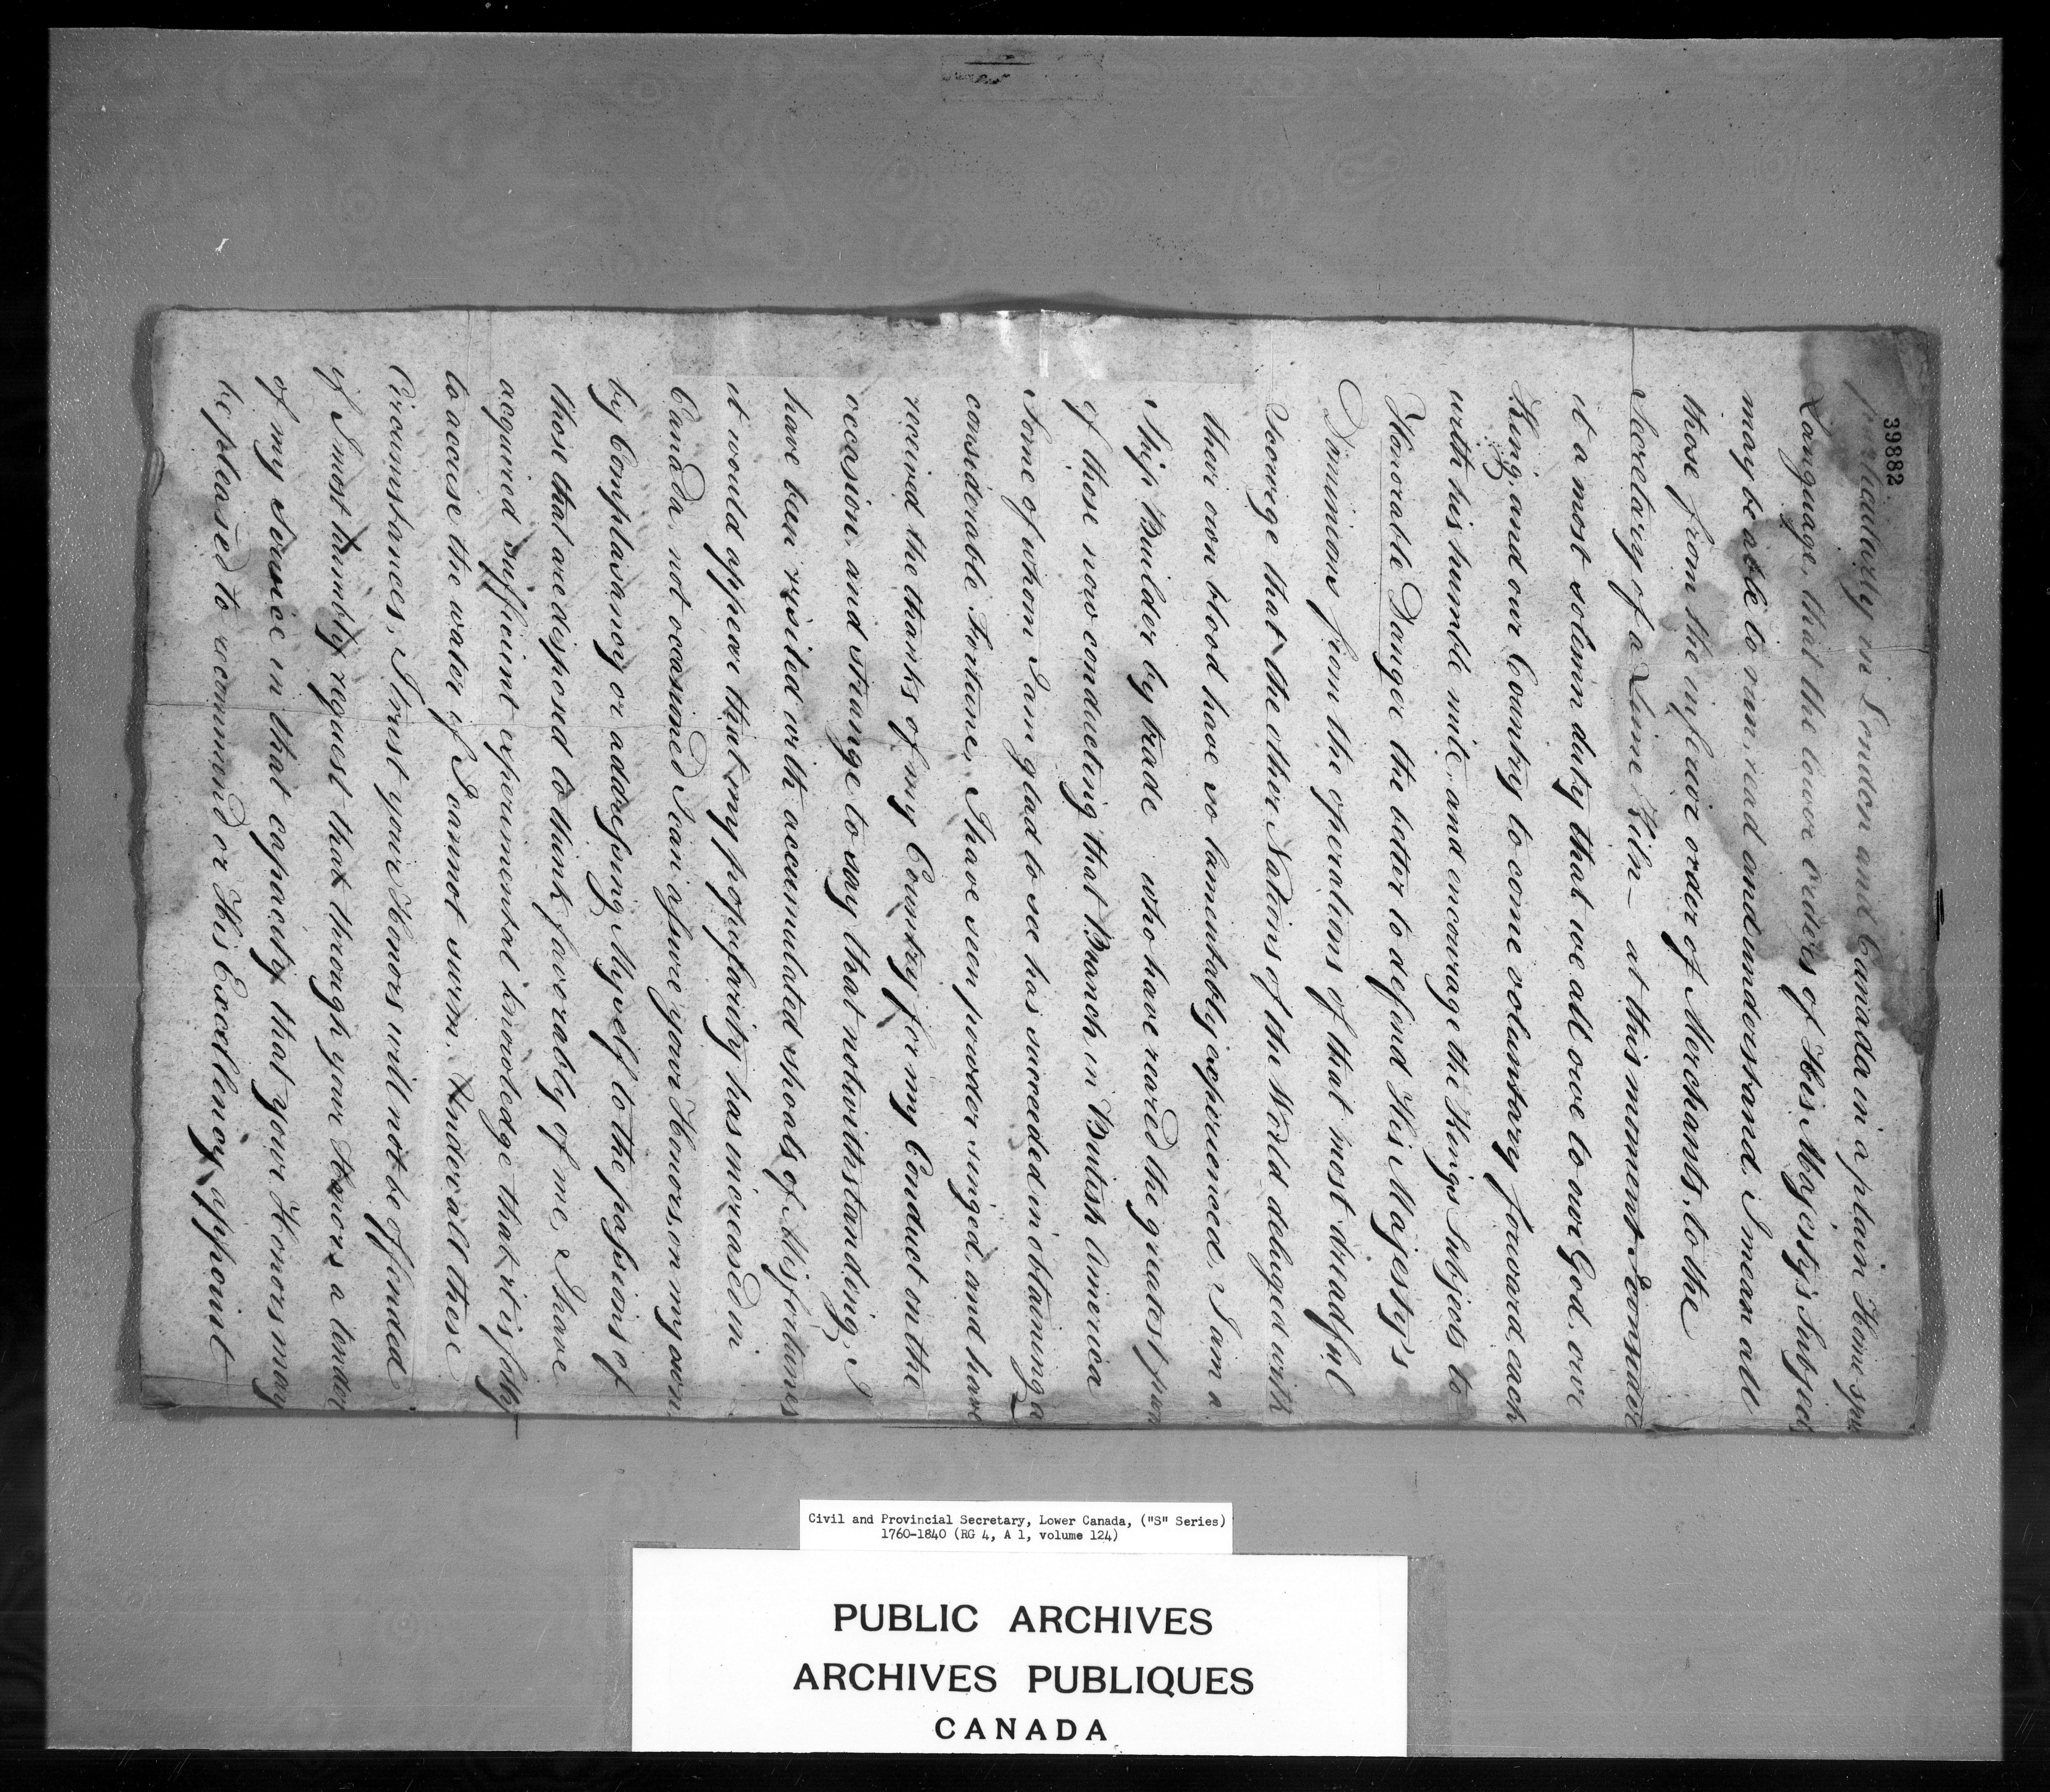 39882
particularly in London and Canada in a plain Home spun
Language, that the lower orders of His Majesty's Subjects
may be able to run, read and understand. I mean all
those from the inferior order of Merchants, to the
Secretary of a Lime Kiln — at this moment I consider
it a most solemn duty that we all owe to our God, our
King, and our Country to come voluntary foward, each
with his humble mite, and encourage the Kings Subjects to
Honorable Danger the better to defend His Majesty's
Dominions from the operations of that most dreadful
Scourge that the other Nations of the World deluged with
their own blood have so lamentably experienced. I am a
Ship Builder by trade who have reared the greatest part
of those now conducting that Branch in British America
Some of whom I am glad to see has succeeded in obtaining a
considerable Fortune, I have seen powder singed, and have
received the thanks of my Country for my Conduct on the
occasion, and strange to say that notwithstanding, I
have been visited with accumulated shoals of Misfortunes
it would appear that my popularity has increased in
Canada, not occasioned I can assure your Honors, on my own
by Complasancy or addressing Myself to the passions of
those that are disposed to think favorably of me, I have
acquired sufficient experimental knowledge that it is folly
to accuse the water if I cannot swim. Under all these
Circumstances, I trust your Honors will not be offended
if I most humbly request that through your Honors a tender
of my Service in that capacity that your Honors may
be pleased to recommend or His Excellency appoint
Civil and Provincial Secretary, Lower Canada, ("S" Series)
1760-1840 (RG 4, A 1, volume 124)
PUBLIC ARCHIVES
ARCHIVES PUBLIQUES
CANADA